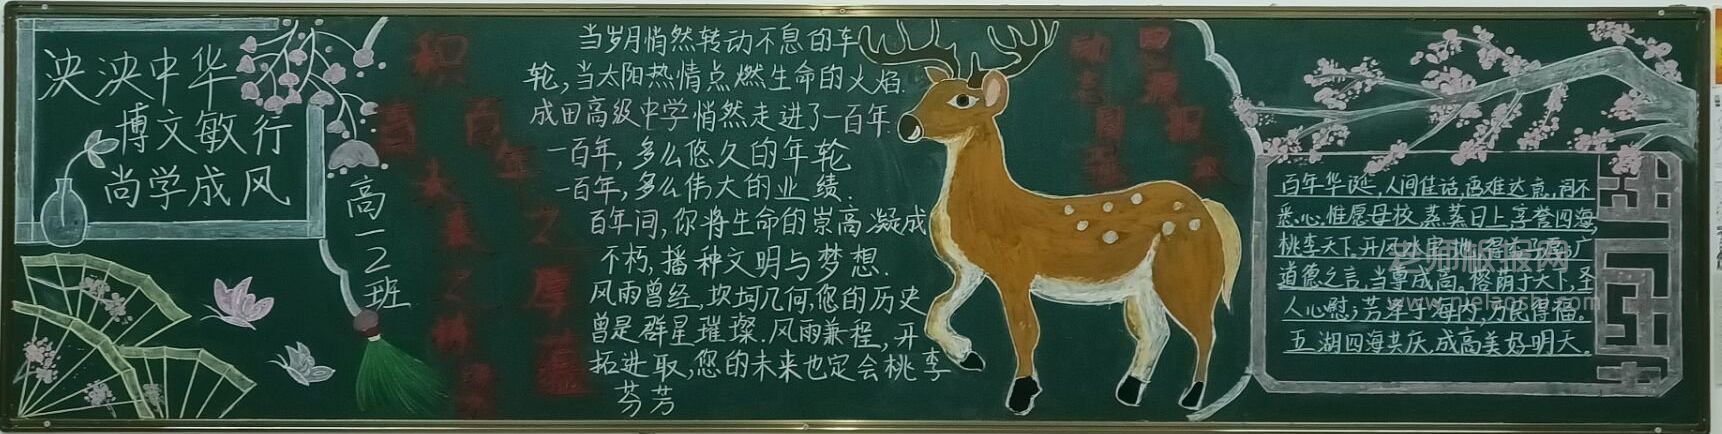 泱泱中华
博文敏行
尚学成风
高一2班
积百年之厚蕴
育未来之
当岁月悄然转动不息的车
轮,当太阳热情点燃生命的火焰.
成田高级中学悄然走进了一百年.
一百年,多么悠久的年轮
一百年,多么伟大的业绩.
百年间,你将生命的崇高凝成
不朽,播种文明与梦想.
风雨曾经,坎坷几何,您的历史
曾是群星璀璨.风雨兼程,开
拓进取,您的未来也定会桃李
芬芳
百年华诞,人间佳话,语难达意,词不
悉心.惟愿母校,蒸蒸日上,享誉四海,
桃李天下.开
道德之言,当掌成高。荫于天下,圣
人心慰;芳泽于海内,万民得福。
五湖四海共庆,成高美好明天。
老师板报网
www.njelaoshi.com